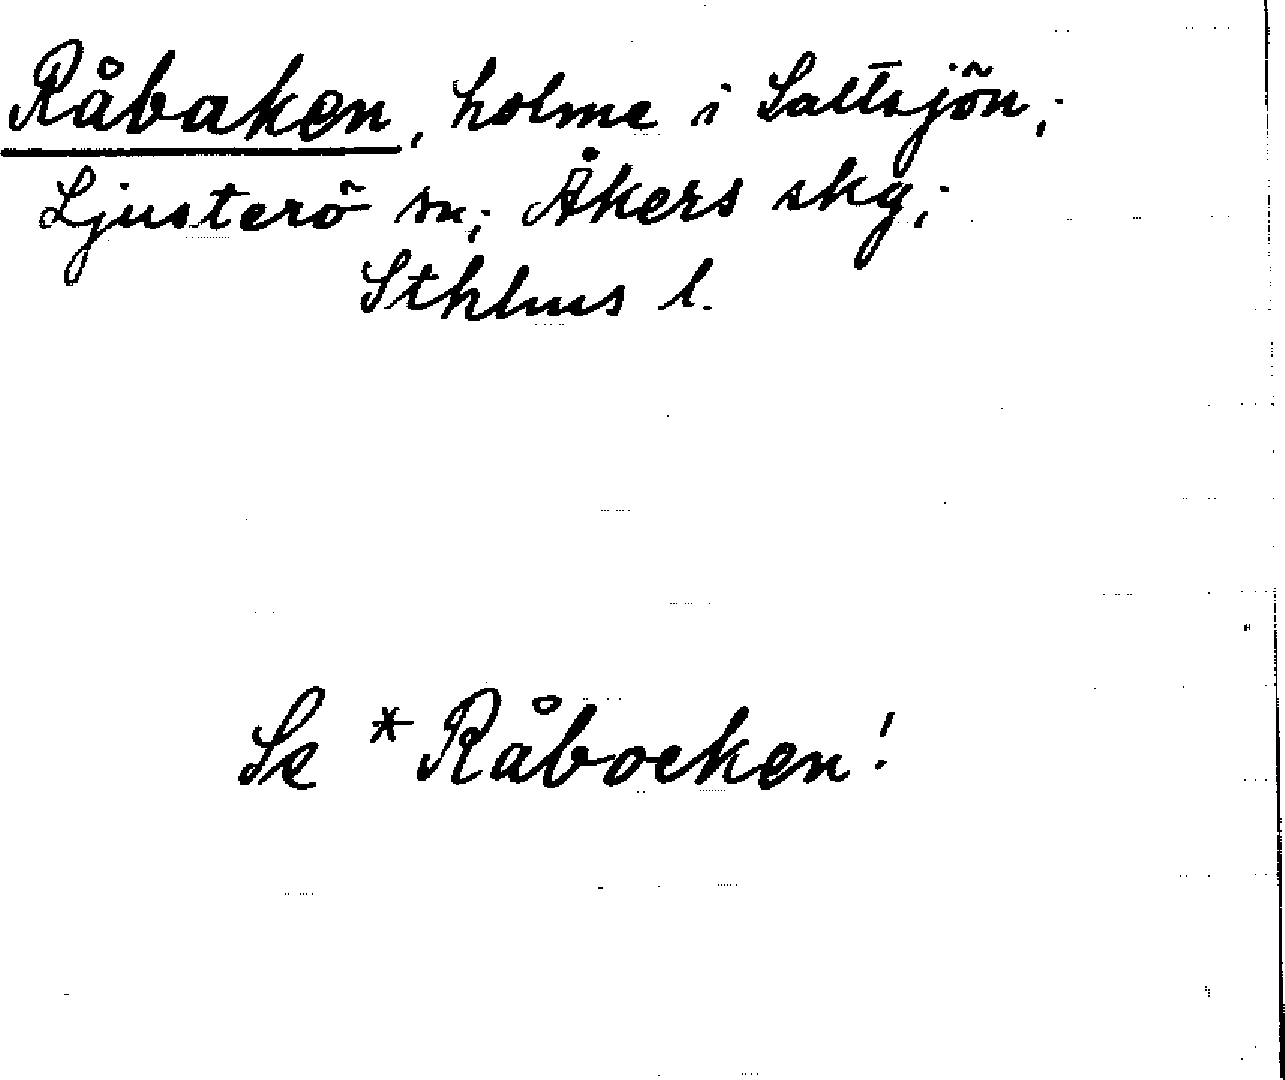 Råbaken, holme i Saltsjön;
Ljusterö sn; Åkers skg;
Sthlms l.
Se *Råbocken!